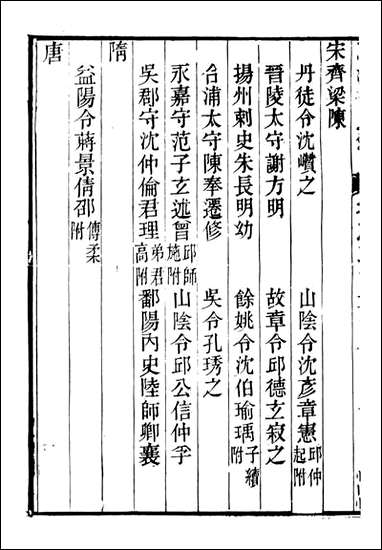 宋齊梁陳
丹徒令沈巑之 山陰令沈彥章憲邱仲起附
晉陵太守謝方明 故章令邱德玄寂之
揚州刺史朱長明幼 餘姚令沈伯瑜瑀子續附
合浦太守陳奉遷修 吳令孔琇之
永嘉守范子玄述曾邱師施附 山陰令邱公信仲孚
吳郡守沈仲倫君理弟君高附 鄱陽內史陸師卿襄
隋
益陽令蔣景倩卲傅柔附
唐